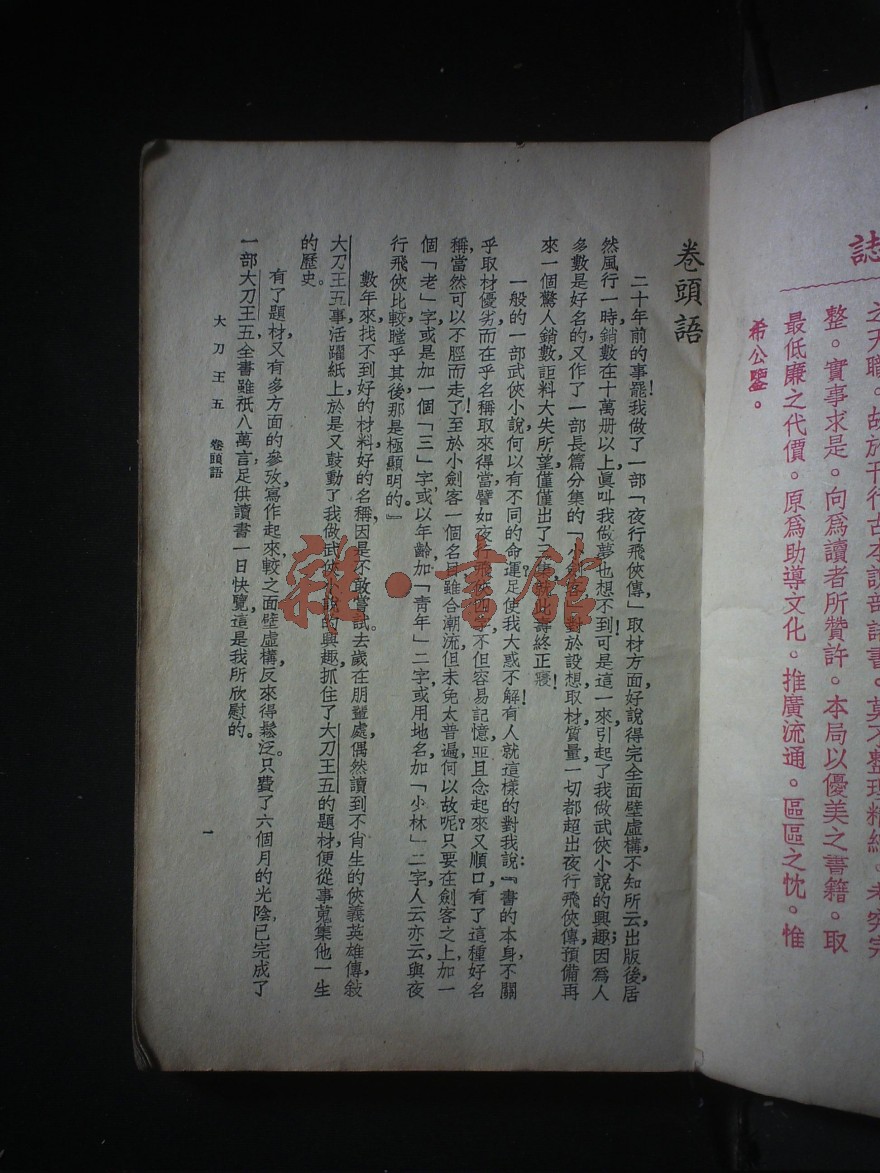 誌
之天職。故於刊行古本說部諸書。莫不整理精
整。實事求是。向爲讀者所贊許。本局以優美之書籍。取
最低廉之代價。原爲助導文化。推廣流通。區區之忱。惟
希公鑒。
卷頭語
二十年前的事罷！我做了一部「夜行飛俠傳」，取材方面，好說得完全面壁虛構，不知所云，出版後，居
然風行一時，銷數在十萬册以上，眞叫我做夢也想不到！可是這一來，引起了我做武俠小說的興趣；因爲人
多數是好名的，又作了一部長篇分集的「小劍客」，對於設想，取材，質量，一切都超出夜行飛俠傳，預備再
來一個驚人銷數，詎料大失所望，僅僅出了三集，就此壽終正寢！
一般的一部武俠小說，何以有不同的命運？足使我大惑不解！有人就這樣的對我說：『書的本身，不關
乎取材優劣，而在乎名稱取來得當，譬如夜行飛俠四字，不但容易記憶，並且念起來又順口，有了這種好名
稱，當然可以不脛而走了！至於小劍客一個名目，雖合潮流，但未免太普遍，何以故呢？只要在劍客之上，加一
個「老」字，或是加一個「三」字，或以年齡加「靑年」二字，或用地名加「少林」二字，人云亦云，與夜
行飛俠比較，瞠乎其後，那是極顯明的。』
數年來找不到好的材料，好的名稱，因是不敢嘗試。去歲在朋輩處，偶然讀到不肖生的俠義英雄傳，敍
大刀王五事，活躍紙上，於是又鼓動了我做武俠小說的興趣，抓住了大刀王五的題材，便從事蒐集他一生
的歷史。
有了題材，又有多方面的參攷，寫作起來，較之面壁虛構，反來得鬆泛。只費了六個月的光陰，已完成了
一部大刀王五全書，雖祇八萬言，足供讀書一日快覽，這是我所欣慰的。
大刀王五　卷頭語
一
雜·書館